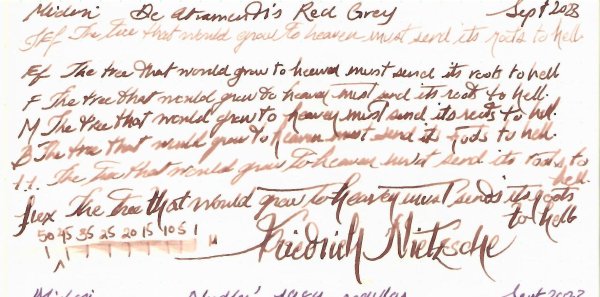 Midori De Atramentis Red Grey Sept 2023
EF The tree that would grow to heaven must send its roots to hell
EF The tree that would grow to heaven must send its roots to hell
F The tree that would grow to heaven must send its roots to hell.
M The tree that would grow to heaven must send its roots to hell.
B The tree that would grow to heaven must send its roots to hell.
1.1 The Tree that would grow to heaven must send its roots to hell
flex The Tree that would grow to heaven must sends its roots to hell
50 45 35 25 20 15 10 5 1
Friedrich Nietzsche
Midori Sept 2023